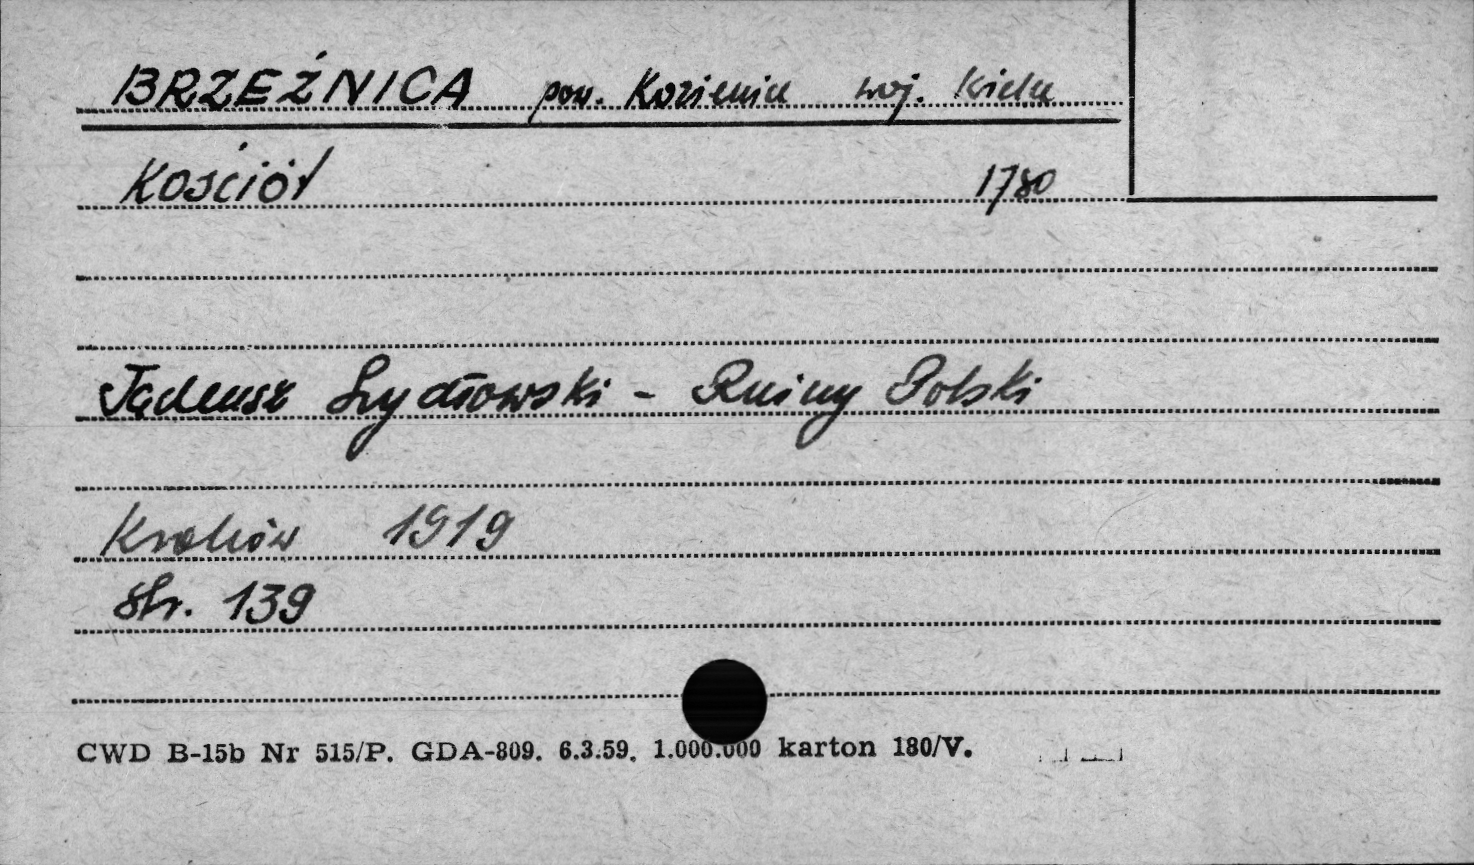 BRZEŹNICA pow. Kozienice woj. Kielce
KOŚCIÓŁ 1780
Tadeusz Szydłowski - Ruiny Polski
Kraków 1919
Str. 139
CWD B-15b Nr 515/P. GDA-809. 6.3.59. 1.000.000 karton 180/V.